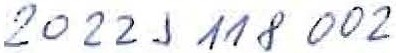 2022 J 118 002